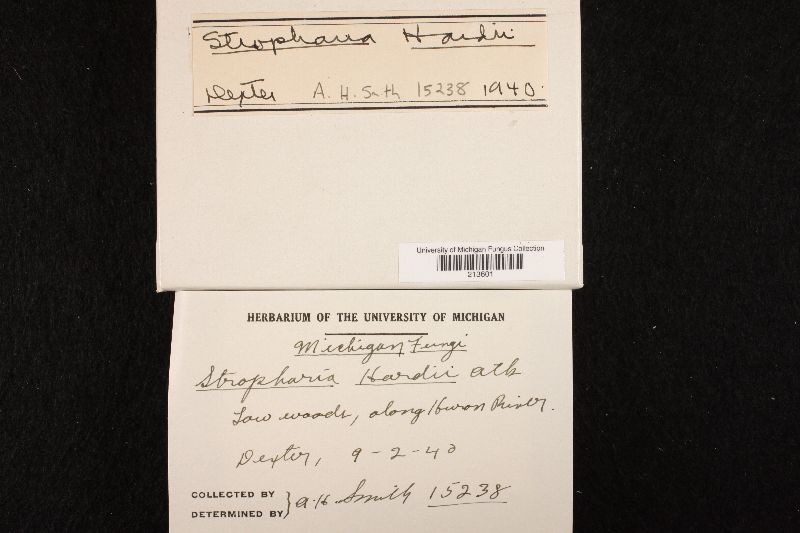 Stropharia Hardii
Dexter A. H. Smith 15238 1940.
University of Michigan Fungus Collection
213601
HERBARIUM OF THE UNIVERSITY OF MICHIGAN
Michigan Fungi
Stropharia Hardii Atk
Low woods, along Huron River.
Dexter, 9-2-40
COLLECTED BY
DETERMINED BY } A. H. Smith 15238